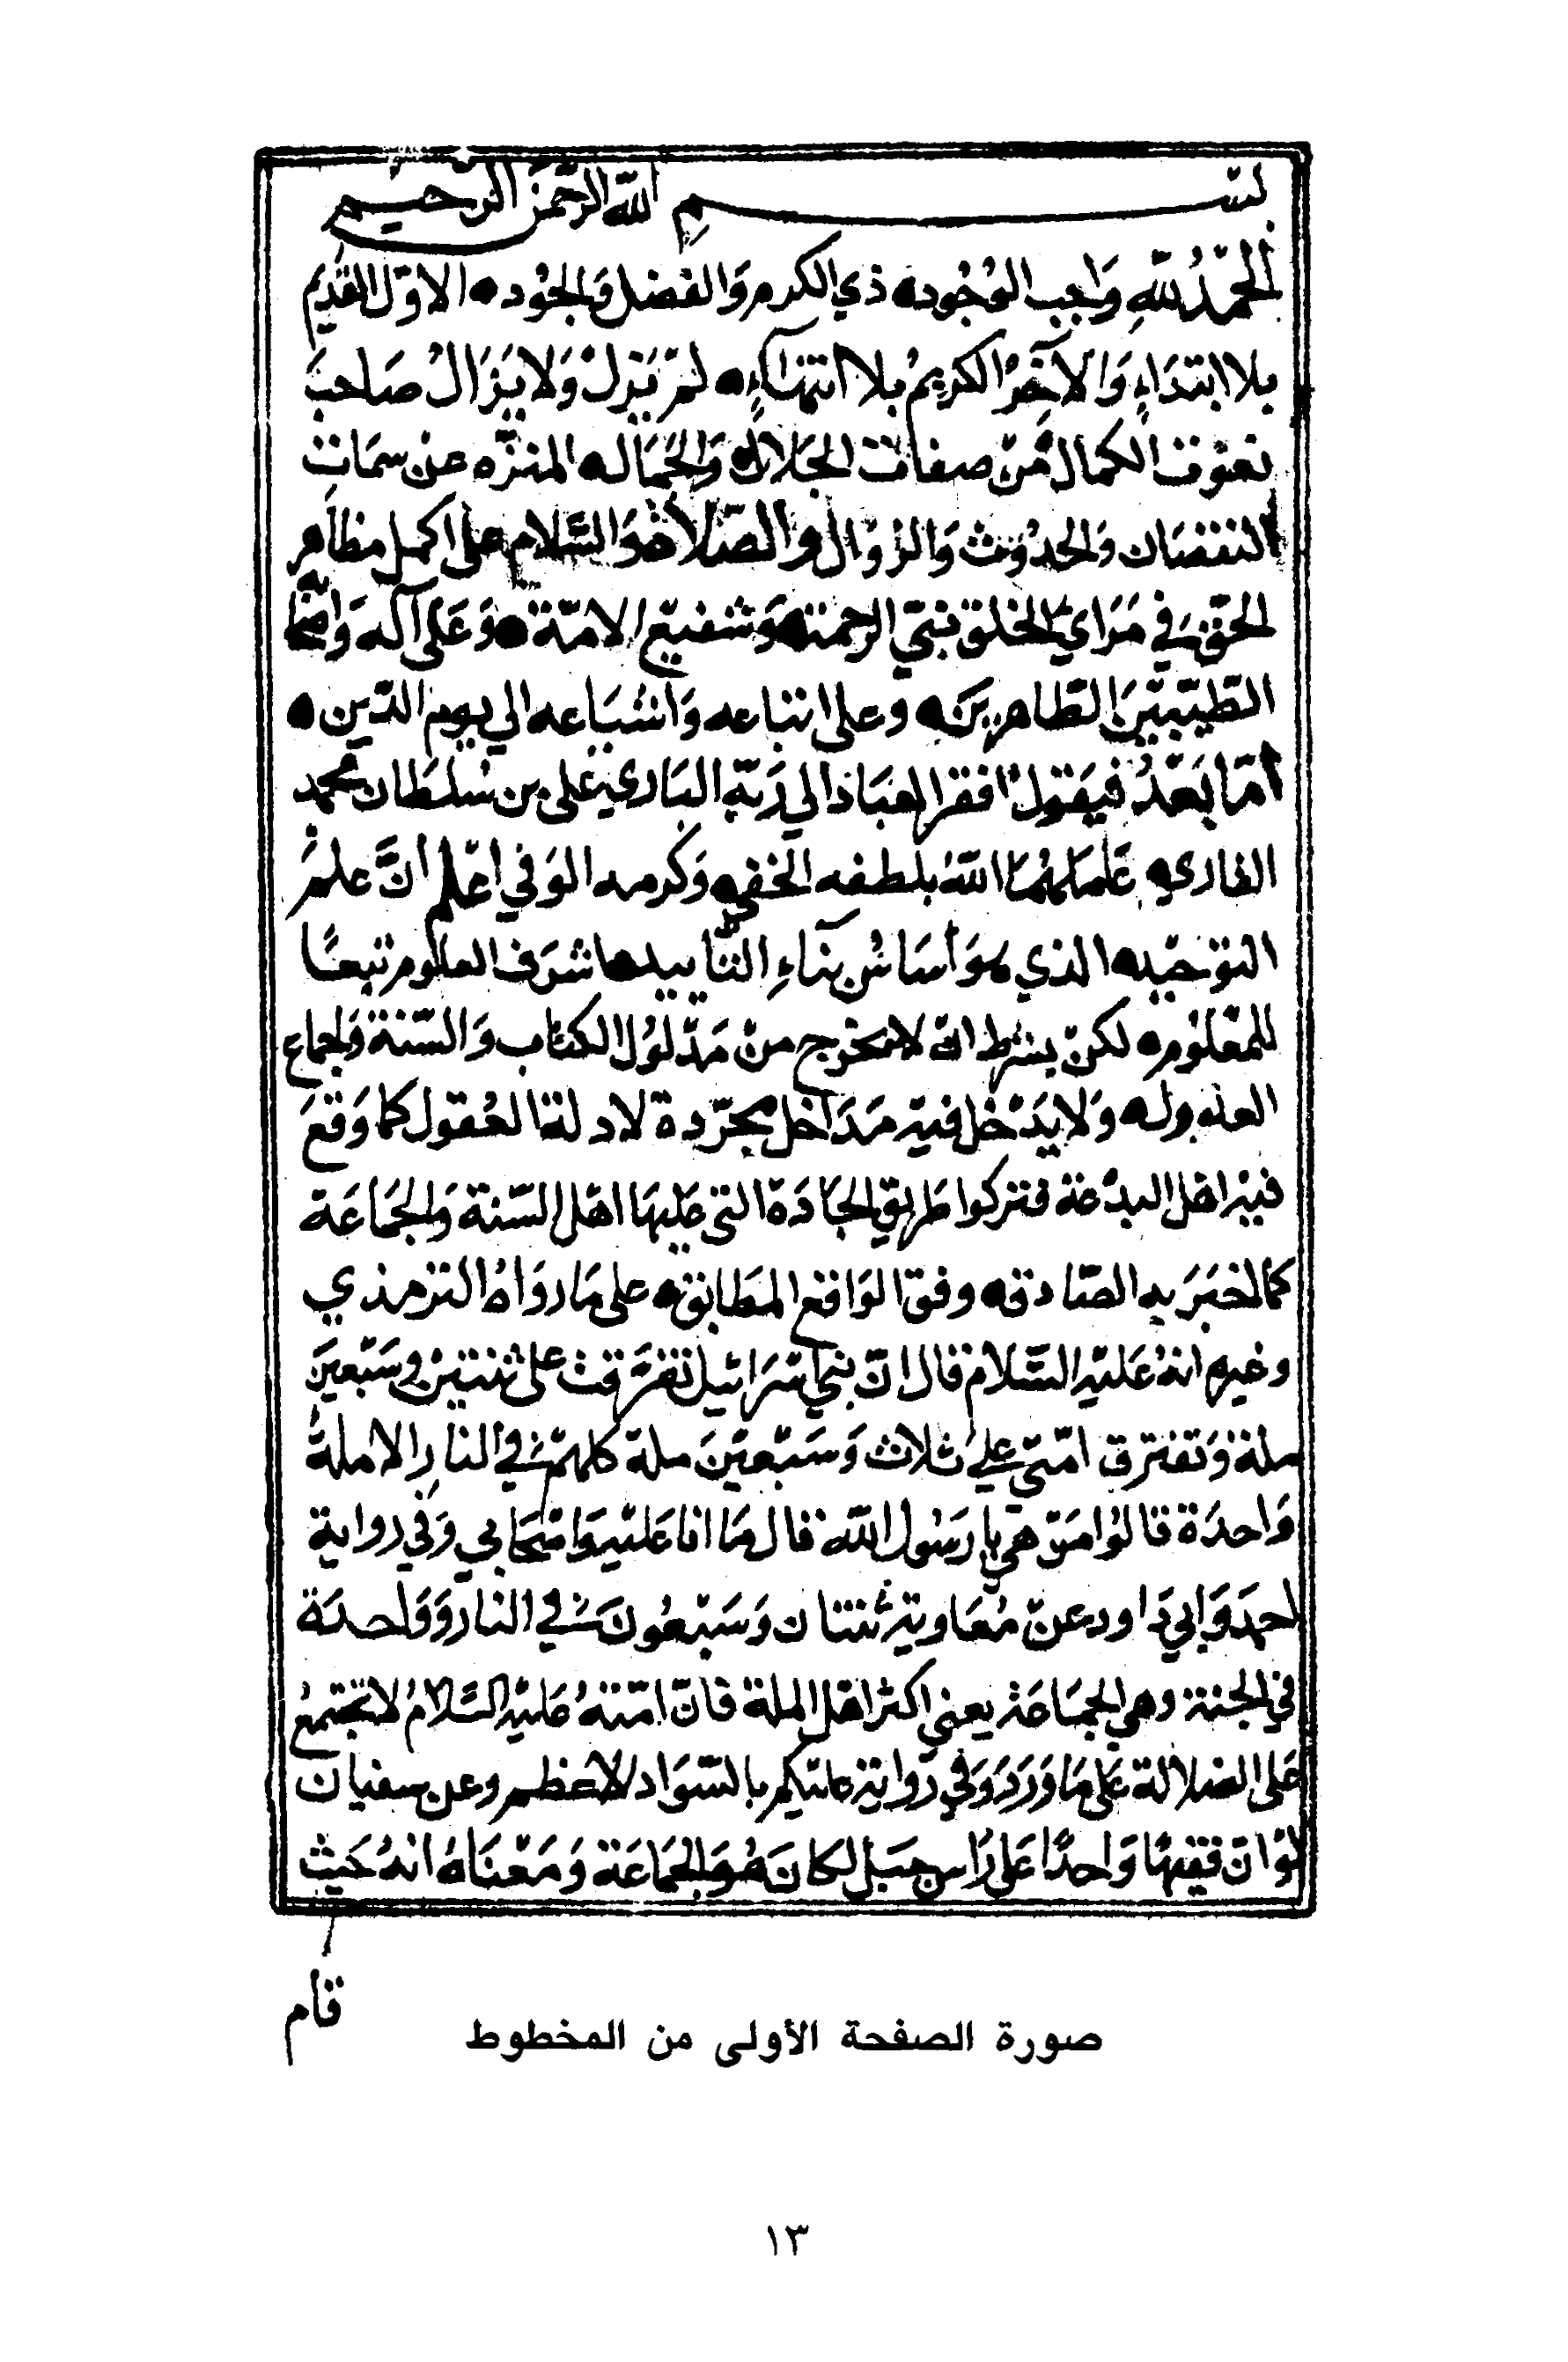 بسم الله الرحمن الرحيم
الحمدُ للهِ وَاجب الوُجُود ذي الكرم وَالفضل وَالجوْد الاوّل القديم
بلا ابتدَاءٍ وَالآخرُ الكريمُ بلا انتهآءٍ لمْ يَزلْ وَلا يَزَالُ صَاحبَ
نعوْت الكمال منْ صفات الجلال وَالجَمَال المنزّه عنْ سمَات
النقصَان وَالحدُوث وَالزوَال والصّلاة وَالسَّلام على اكمل مظاهر
الحقّ في مَرَاي الخلق نبيّ الرحمة وَشفيع الامّة وَعَلى آله وَاصحابه
الطيّبيْنَ الطّاهرينَ وعلى اتباعه وَاشيَاعه الي يوم الدّين
امّا بَعْدُ فيَقول افقر العبَاد الي رَبّهِ البَاري علي بن سُلطَان محمد
القاري عَامَلهُمَا اللهُ بلطفه الخفي وَكرمه الوَفي اعْلم انَّ علمَ
التوحيد الذي هوَ أسَاسُ بنآءِ التّأييد اشرَف العلوم تبعًا
للمعْلوْم لكنْ بشرط انّه لا يخرج منْ مَدْلوُل الكتاب وَالسّنة وَاجماع
العدول وَلا يَدْخل فيه مَدَاخل مجرّدة لادلة العُقول كما وَقعَ
فيْه اهل البدْعة فتركوا طريق الجَادَة التي عَليهَا اهْل السّنة وَالجَمَاعَة
كما اخبَرَ به الصّادق وفق الوَاقع المطَابق على مَا روَاهُ الترمذي
وغيره انهُ عَليْه السَّلام قال انّ بني اسْرَائيل تفرَّقت على ثنتينْ وسَبْعينَ
ملة وَتفترق امّتي علي ثلاث وَسَبْعيْنَ ملة كلهمْ في النارِ الا ملةً
وَاحدَة قالوُا مَنْ هي يا رَسُول الله قال مَا انا عَليْه وَاصْحَابي وَفي رواية
احمدَ وَابي دَاود عنْ مُعَاوية ثنتان وَسَبْعُونَ في النار وَوَاحدَة
في الجنة وهي الجمَاعَة يعني اكثر اهْل الملة فانّ امّتهُ عَليْه السَّلامُ لا تجتمعُ
عَلى الضلالة عَلى مَا وَرَدَ وَفي رواية عليكم بالسّوَاد الاعْظم وعن سفيان
لوْ انّ فقيهًا وَاحدًا عَلى رَاس جبَل لكانَ هُوَ الجَمَاعَة وَمَعْنَاهُ انهُ حَيث
قام
صورة الصفحة الأولى من المخطوط
١٣